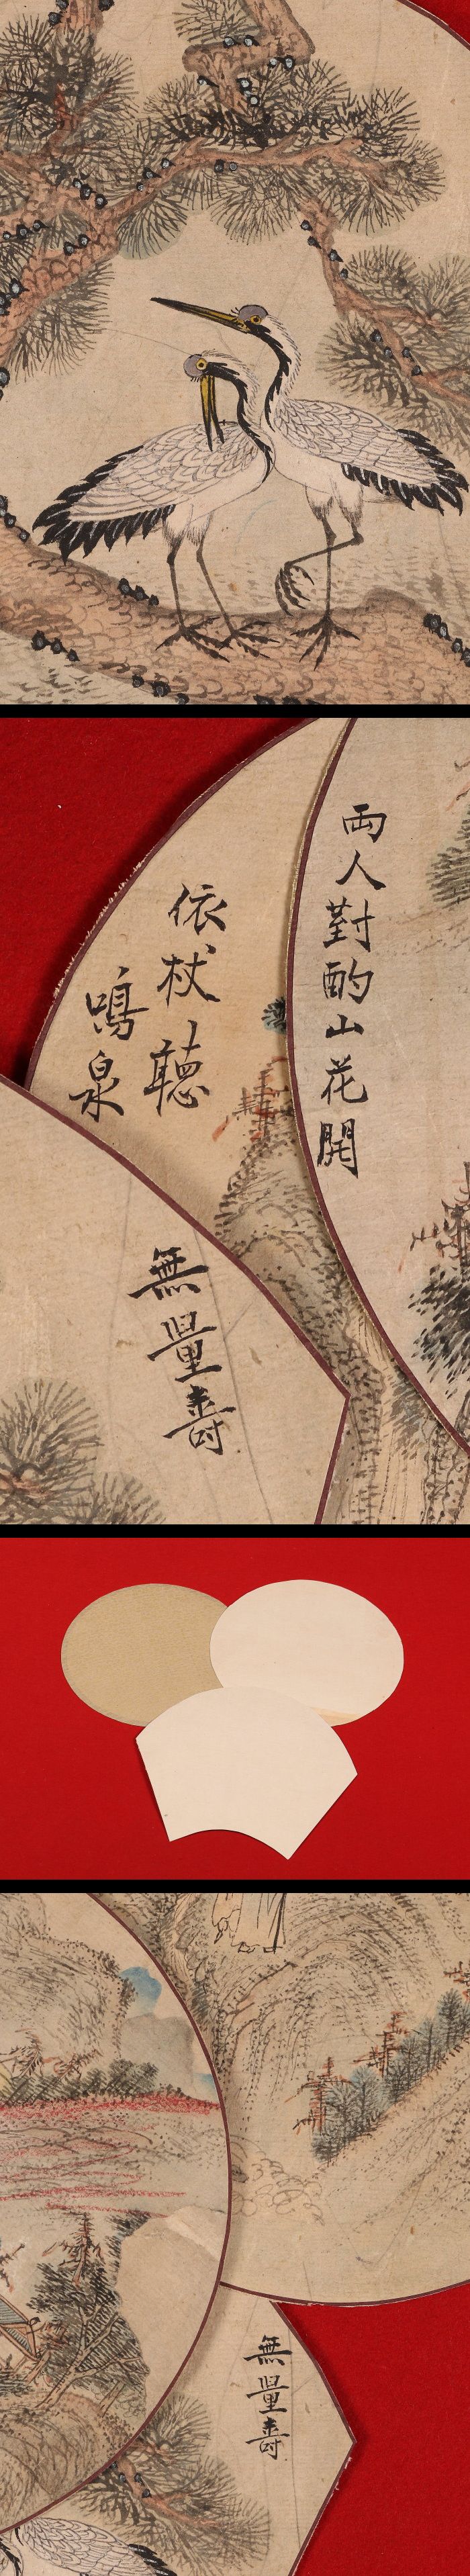 両人對酌山花開
依杖聴
鳴泉
無量壽
無量壽